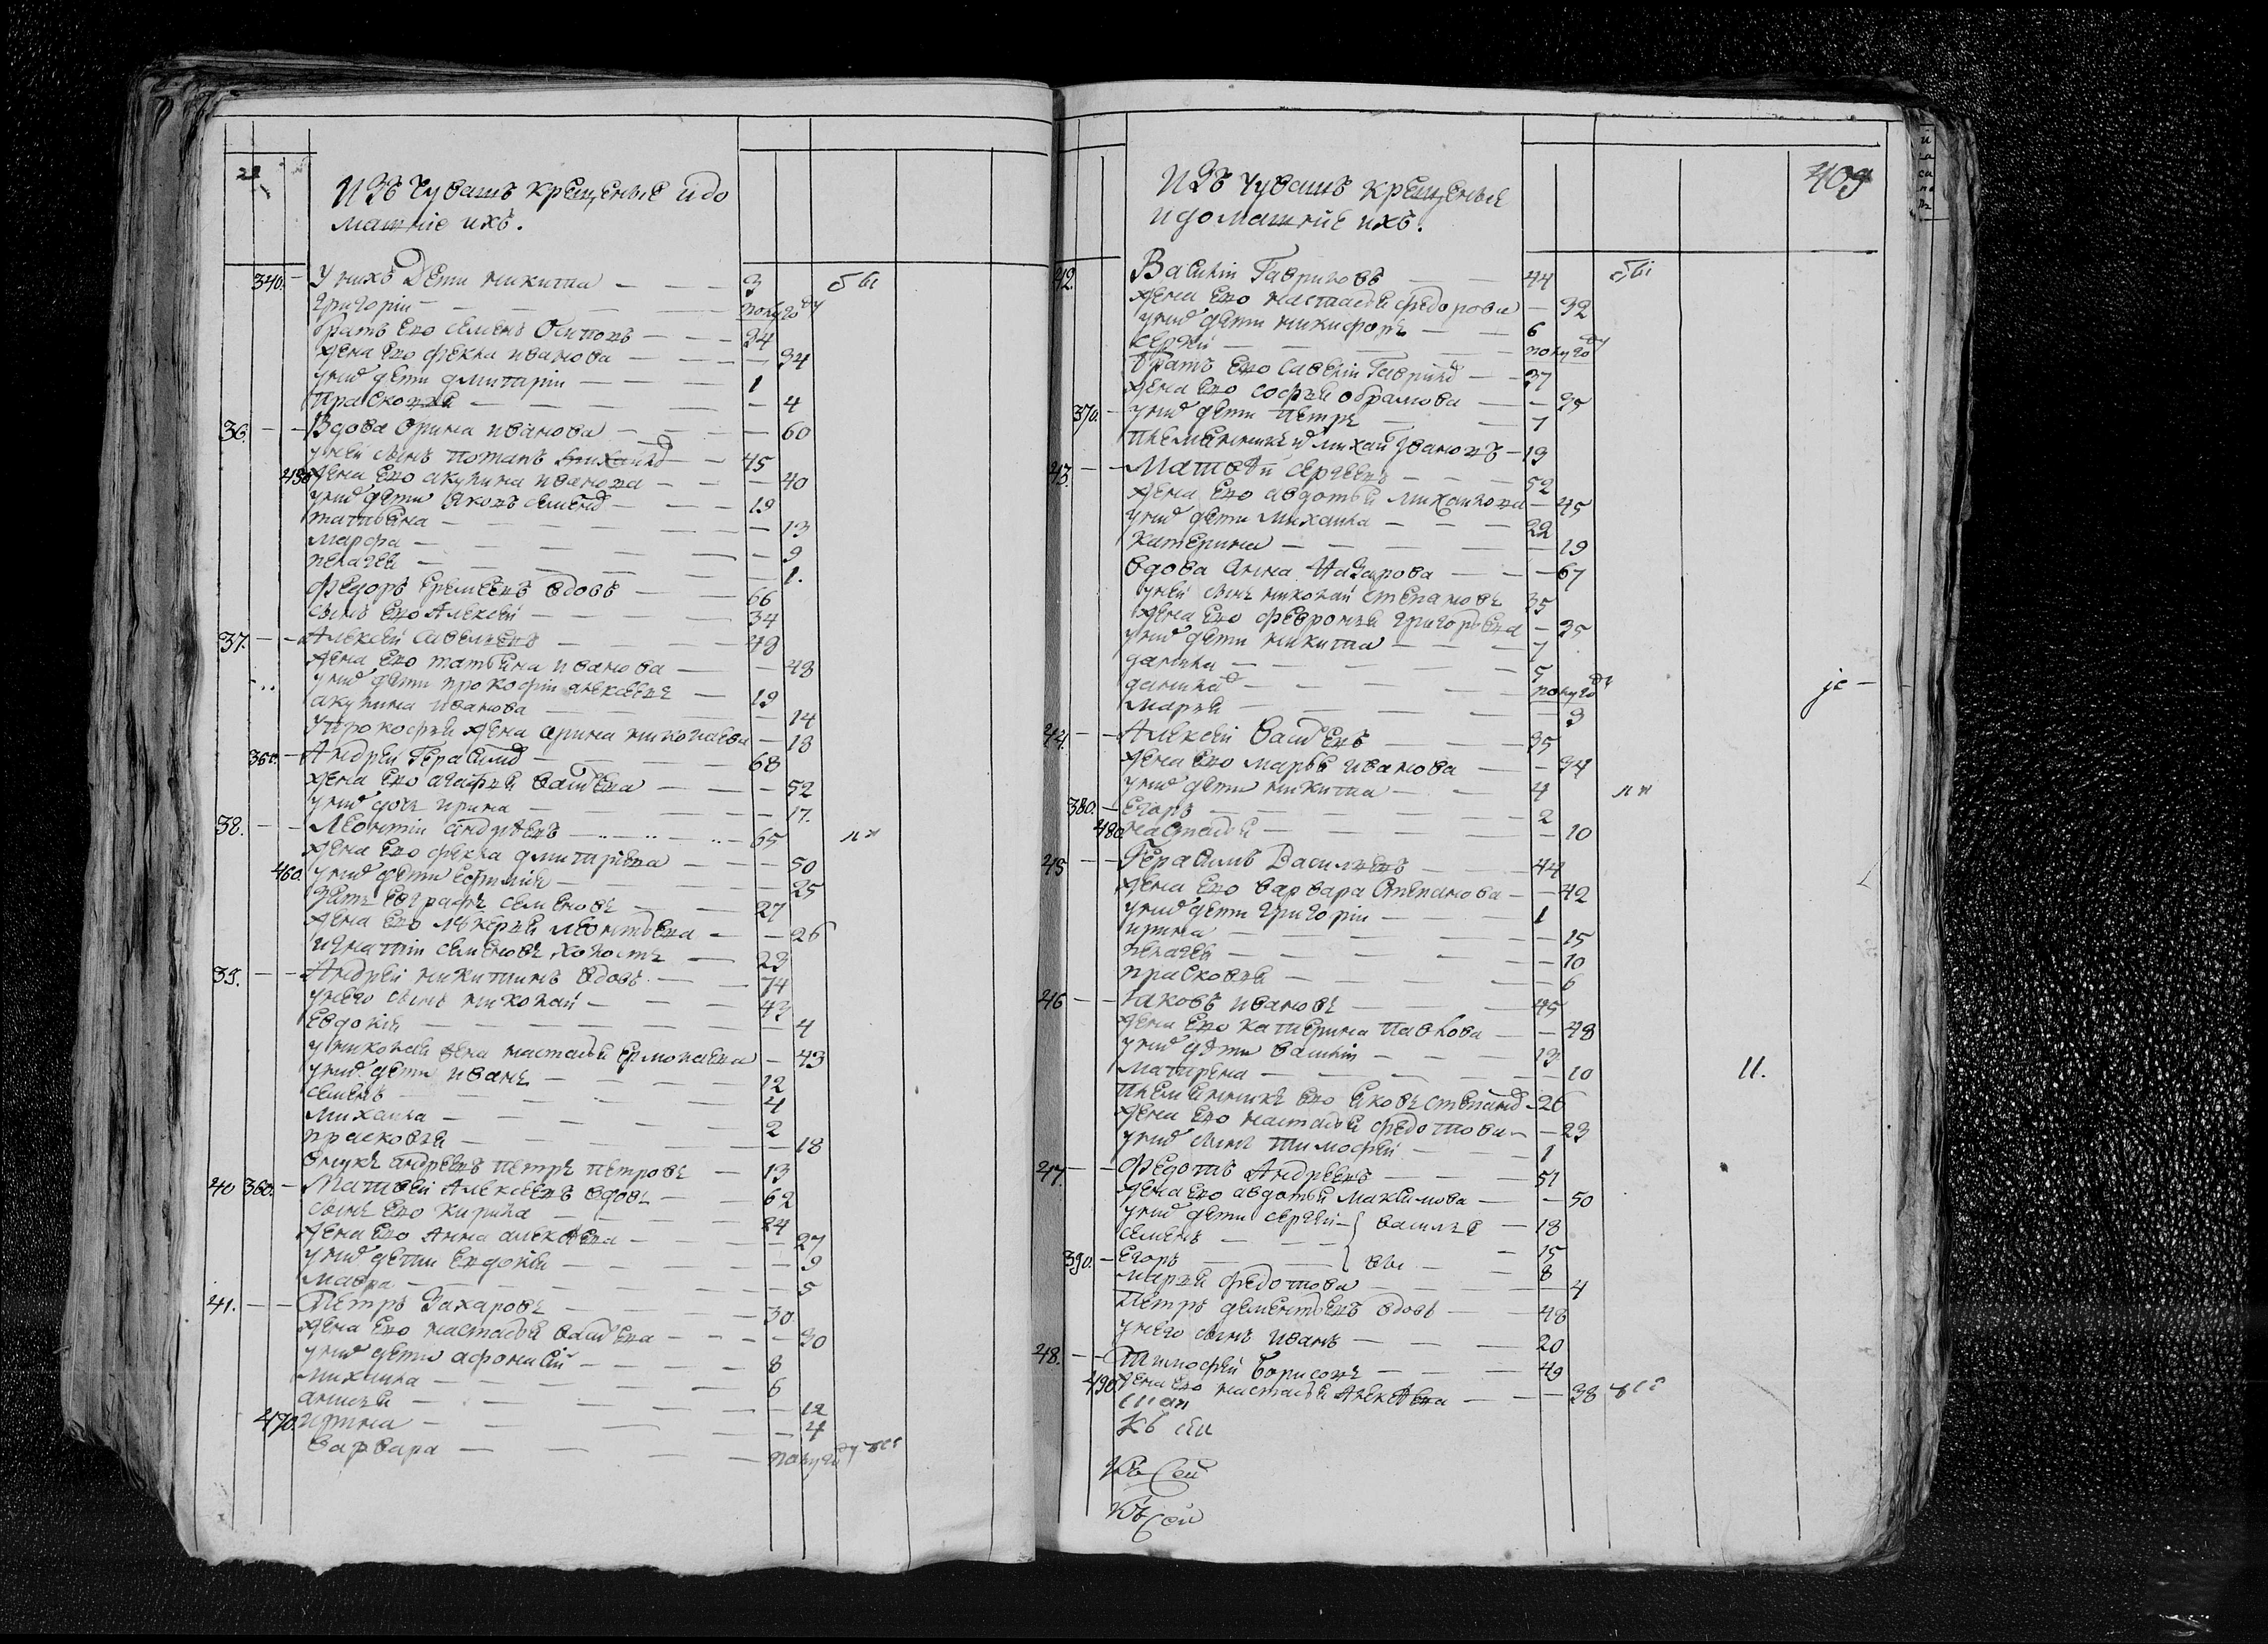 Изъ чувашъ крещеные и до
машніе ихъ.
340. У нихъ дети никита 3 бы
григорій полугоду
братъ ево семенъ Осиповъ 34
жена ево фекла иванова 34
у них дети дмитрій 1
прасковья 4
36. Вдова орина иванова 60
у неи сынъ потапъ 45
жена ево акулина иванова 40
у них дети яковъ семенов 19
татьяна 13
марфа 9
пелагея 1.
федоръ еремеевъ вдовъ 66
сынъ ево Алексей 34
37. Алексей савельевъ 49
жена ево татьяна иванова 48
у них дети прокофій алексеевъ 19
акулина иванова 14
у прокофья жена орина николаева 18
Андрей Герасимов 68
жена ево агафья васильева 52
у них дочь ирина 17.
38. Леонтій андреевъ 65
жена ево фекла дмитріева 50
460. у них дети 25
зять евграфъ семеновъ 27
жена ево лукерья леонтьева 26
игнатій семеновъ холостъ 23
39. Андрей никитинъ вдовъ 74
у него сынъ николай 43
Евдокия 4
у николая жена настасья ермолаева 43
у них дети иванъ 12
семенъ 4
михаила 2
прасковья 18
внукъ андреевъ петръ петровъ 13
40 360. Матвей Алексеевъ вдовъ 62
сынъ ево кирила 24
жена ево Анна алексеева 27
у них дети евдокия 9
мавра 5
41. Петръ Захаровъ 30
жена ево настасья васильева 30
у них дети афонасій 8
михаила 6
анисья 12
470. ирина 4
варвара полугоду
409
Изъ чувашъ крещеные
и домашніе ихъ.
42. Василій Гавриловъ 44 бы
жена ево настасья федорова 32
у них дети никифоръ 6
сергей полугоду
братъ ево савелій Гаврилов 37
жена ево софья абрамова 35
370. у них дети петръ 7
племянникъ их михаи Ивановъ 19
43. Матвей сергеевъ 52
жена ево авдотья михаилова 45
у них дети михаила 22
катерина 19
вдова анна Назарова 67
у неи сынъ николай степановъ 35
жена ево февронья григорьева 35
у них дети никита 7
данила 5
данила полугоду
марья 3
44. Алексей васильевъ 35
жена ево марья иванова 34
у них дети никита 4
380. егоръ 2
480. настасья 10
45 Герасимъ Васильевъ 44
жена ево варвара степанова 42
у них дети григорій 1
ирина 15
пелагея 10
прасковья 6
46 яковъ ивановъ 45
жена ево катерина павлова 48
у них дети василій 13
матрена 10 11.
племянникъ ево яковъ степанов 26
жена ево настасья федотова 23
у них сынъ тимофей 1
47. Федотъ Андреевъ 51
жена ево авдотья максимова 50
у них дети сергей василье 18
семенъ 15
390. егоръ вы 8
марья федотова 4
Петръ дементьевъ вдовъ 48
у него сынъ иванъ 20
48. Тимофей борисовъ 49
490. жена ево настасья Алексеева 38
Къ сеи
Къ сеи
Къ сеи